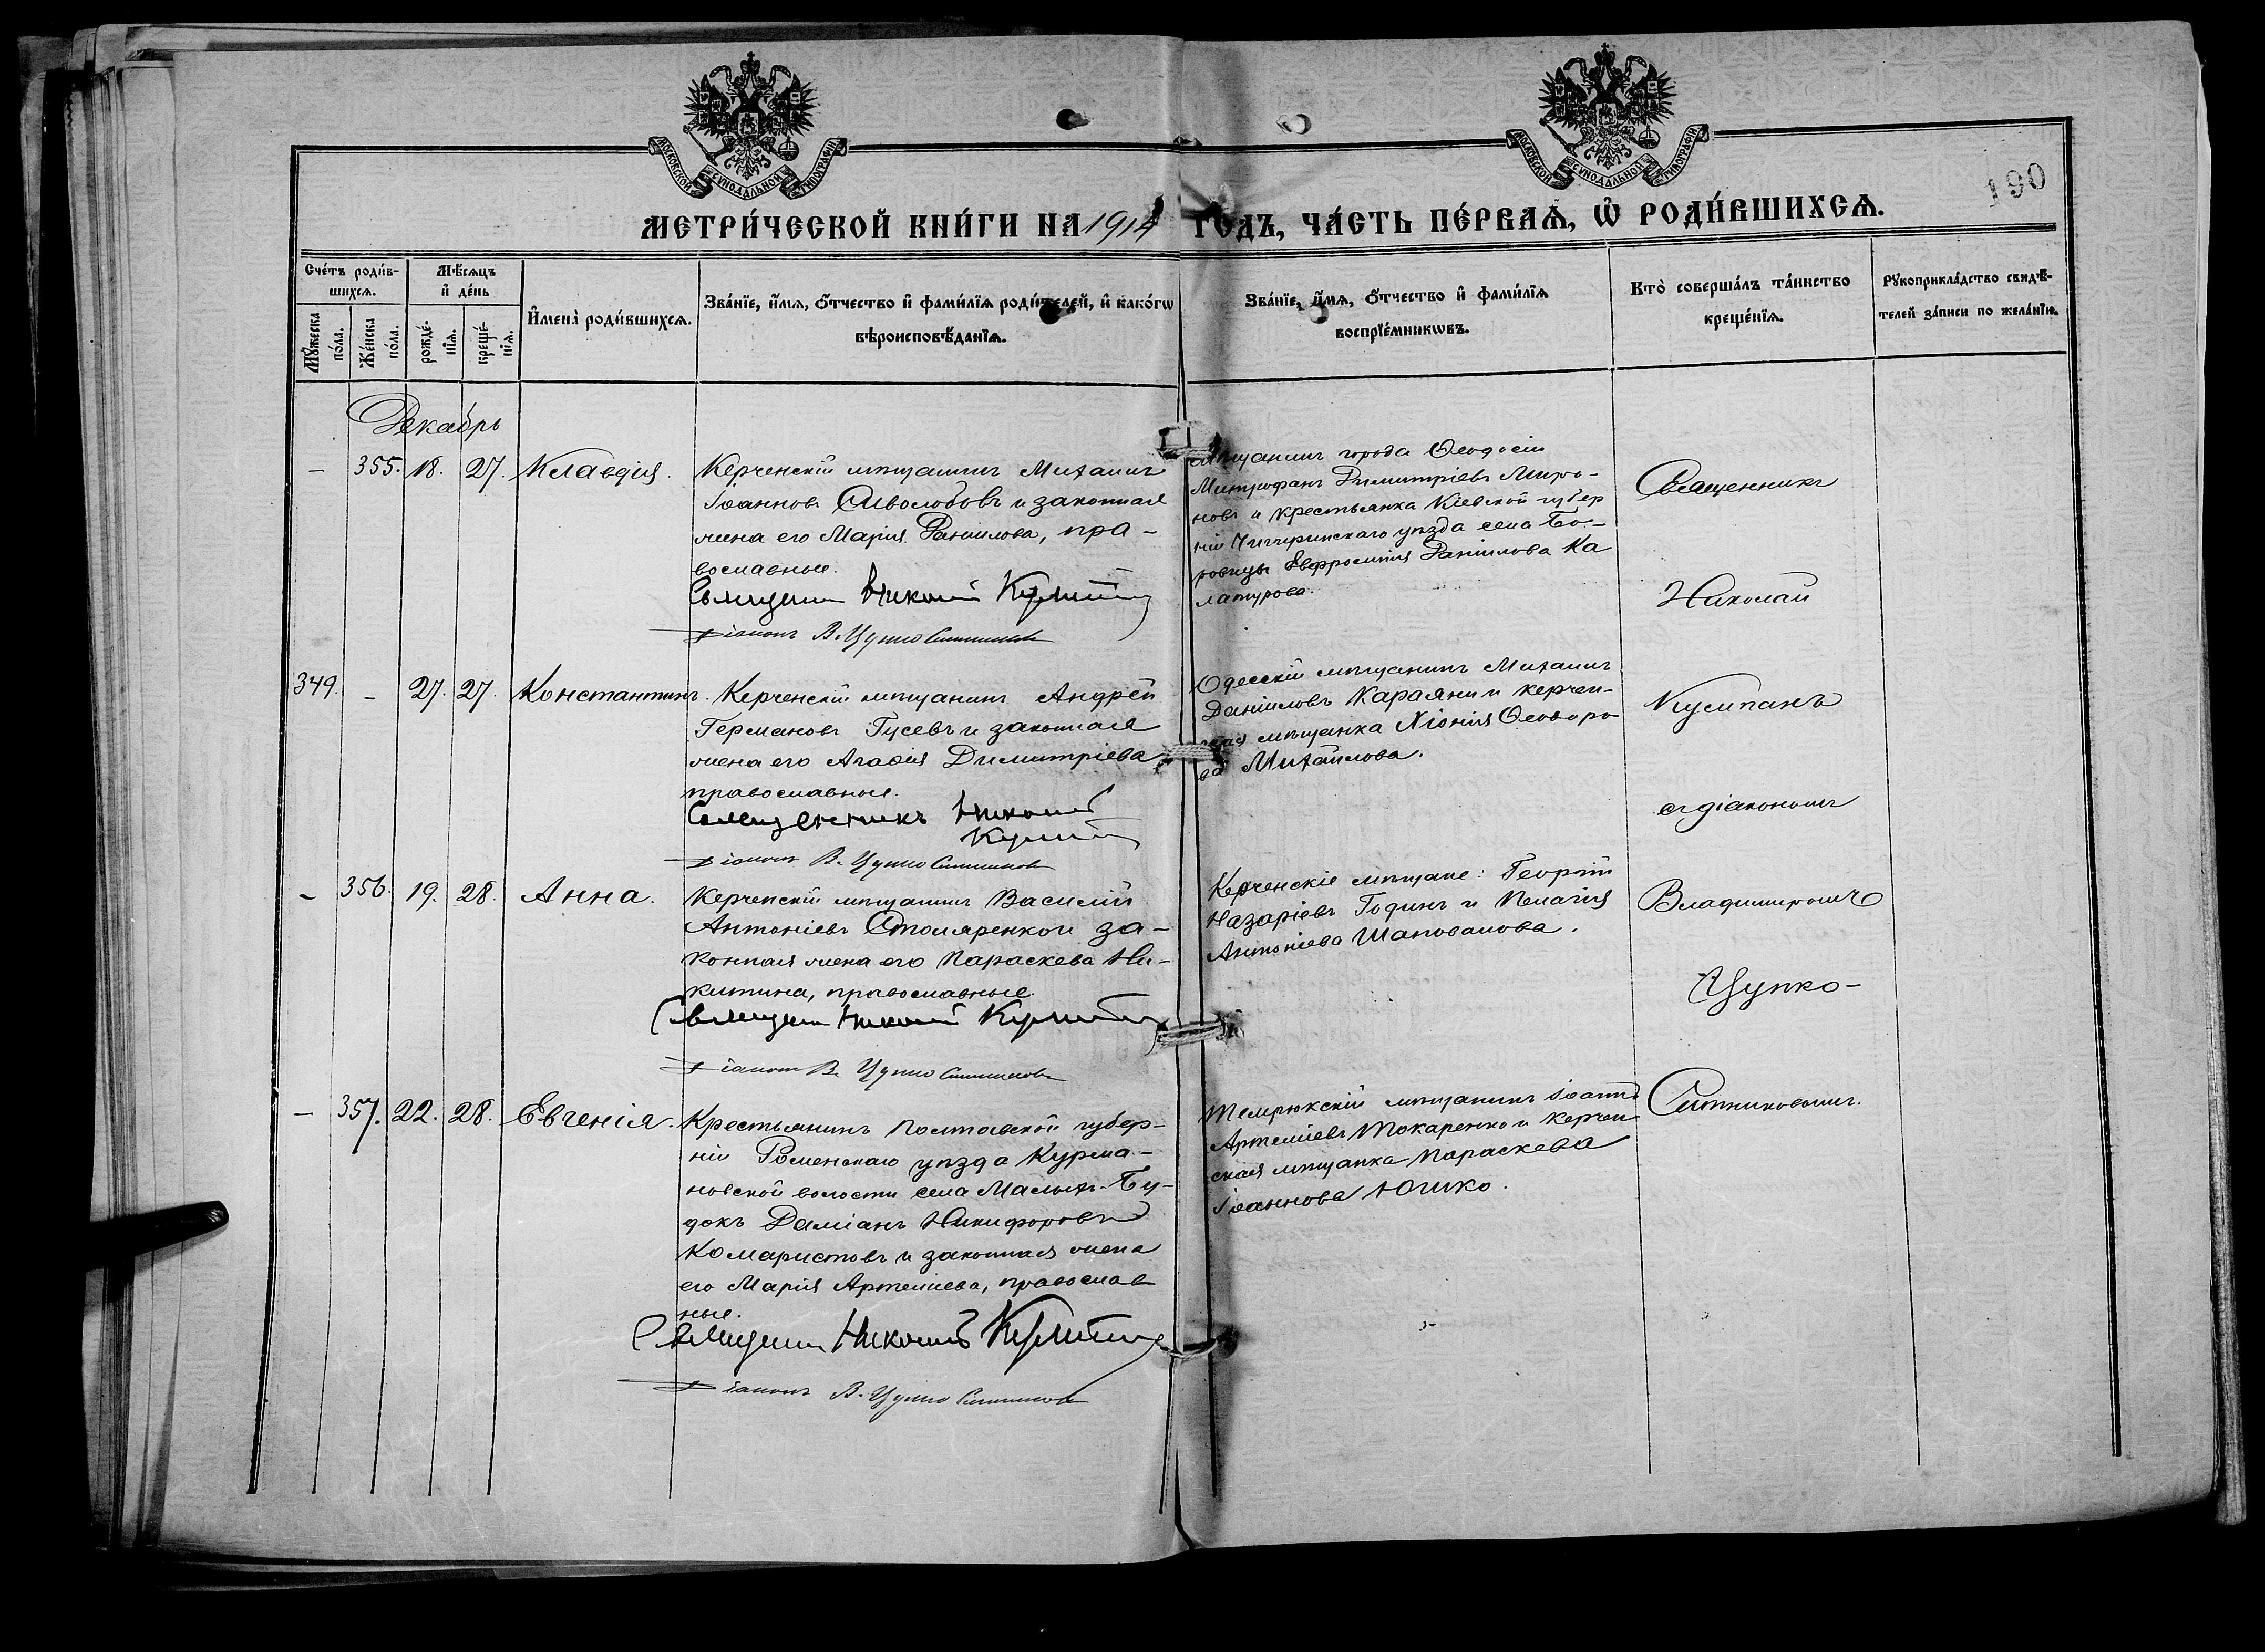 МОСКОВСКОЙ СѴНОДАЛЬНОЙ ТИПОГРАФІИ
МОСКОВСКОЙ СѴНОДАЛЬНОЙ ТИПОГРАФІИ
190
МЕТРИ́ЧЕСКОЙ КНИ́ГИ НА 1914 ГОДЪ, ЧА́СТЬ ПЕ́РВАѦ, Ѽ РОДИ́ВШИХСѦ.
Счéтъ роди́в-
шихсѧ.
Мꙋ́жеска
по́ла.
Же́нска
по́ла.
Мѣ́сѧцъ
и҆ де́нь
рожде́-
нїѧ.
креще́-
нїѧ.
И҆мена̀ роди́вшихсѧ.
Зва́нїе, и҆́мѧ, ѻ҆́тчество и҆ фами́лїѧ роди́телей, и҆ како́гѡ
вѣроисповѣ́данїѧ.
Зва́нїе, и҆́мѧ, ѻ҆́тчество и҆ фами́лїѧ
воспрїе́мникѡвъ.
Кто̀ соверша́лъ та́инство
креще́нїѧ.
Рꙋкоприкла́дство свидѣ́-
телей за́писи по жела́нїю.
Декабрь
– 355. 18. 27. Клавдія.
Керченскій мѣщанинъ Михаилъ
Іоанновъ Сиволобовъ и законная
жена его Марія Даніилова, пра-
вославные.
Священникъ Николай
Діаконъ В. Цупко Ситниковъ
мѣщанинъ города Ѳеодосіи
Митрофанъ Димитріевъ Миро-
новъ и крестьянка Кіевской губер
ніи Чигиринскаго уѣзда села Бо-
ровицы Евфросинія Даніилова Ка
латурова.
349. – 27. 27. Константинъ.
Керченскій мѣщанинъ Андрей
Германовъ Гусевъ и законная
жена его Агаѳія Димитріева
православные.
Священникъ Николай
Діаконъ В. Цупко Ситниковъ
Одесскій мѣщанинъ Михаилъ
Даніиловъ Караяни и керчен-
ская мѣщанка Хіонія Ѳеодоро
ва Михайлова.
– 356. 19. 28. Анна.
Керченскій мѣщанинъ Василій
Антоніевъ Столяренко и за-
конная жена его Параскева Ни-
китина, православные.
Священникъ Николай
Діаконъ В. Цупко Ситниковъ
Керченскіе мѣщане: Георгій
Назаріевъ Годинъ и Пелагія
Антоніева Шаповалова.
– 357. 22. 28. Евгенія.
Крестьянинъ Полтавской губер-
ніи Роменскаго уѣзда Курма-
новской волости села Малыхъ-Бу-
докъ Даміанъ Никифоровъ
Комаристовъ и законная жена
его Марія Артеміева, православ
ные.
Священникъ Николай
Діаконъ В. Цупко Ситниковъ
Темрюкскій мѣщанинъ Іоаннъ
Артеміевъ Токаренко и керчен
ская мѣщанка Параскева
Іоаннова Юшко.
Священникъ
Николай
Кулпанъ
съ діакономъ
Владимиромъ
Цупко-
Ситниковымъ.